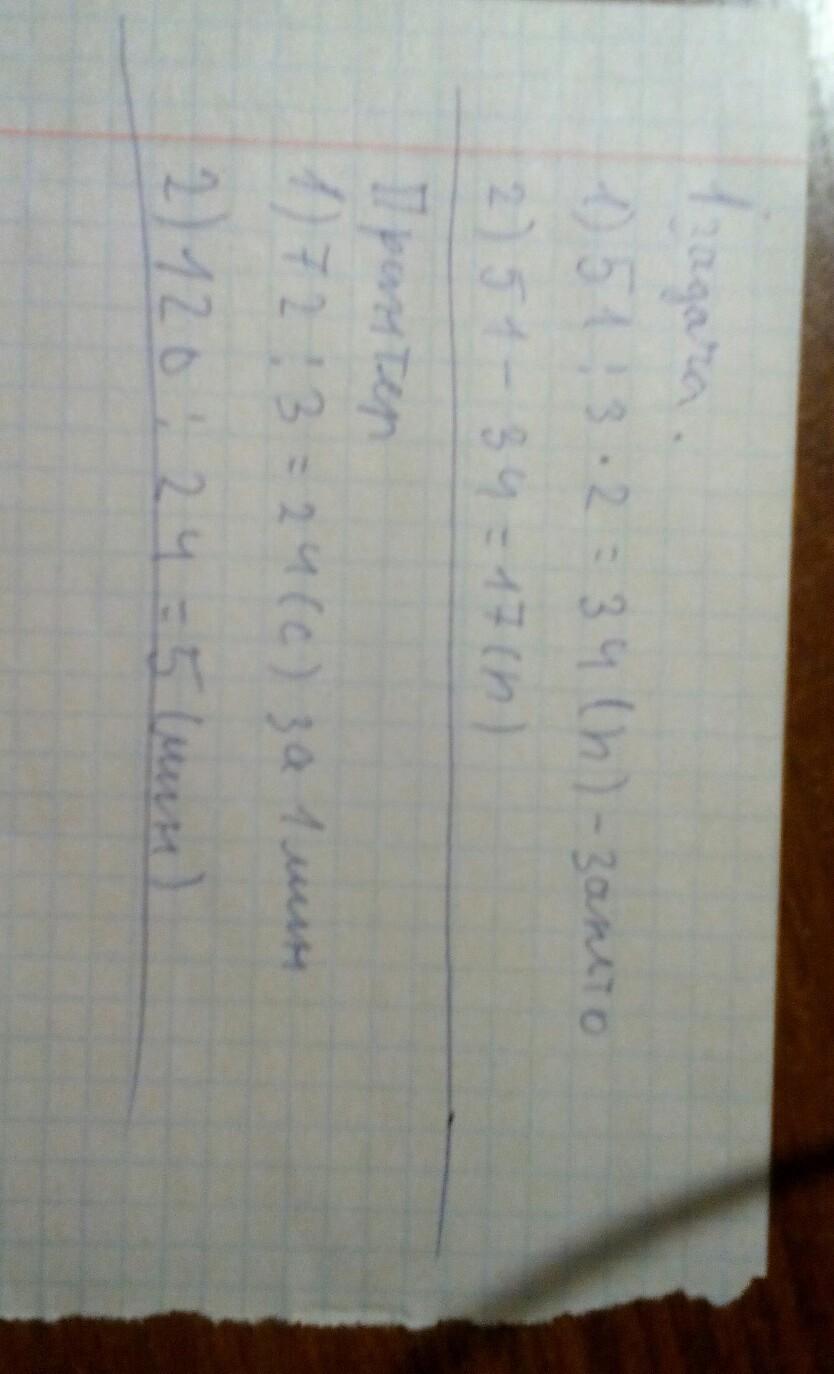 1 задача.
1) 51 : 3 · 2 = 34 (п) - занято
2) 51 - 34 = 17 (п)
Принтер
1) 72 : 3 = 24 (с) за 1 мин
2) 120 : 24 = 5 (мин)